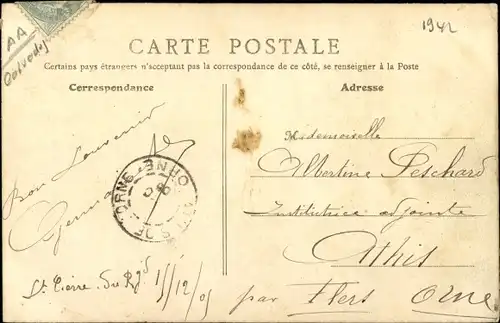 AA
Calvados
1942
CARTE POSTALE
Certains pays étrangers n'acceptant pas la correspondance de ce côté, se renseigner à la Poste
Correspondance
Adresse
Bon Souvenir
Mademoiselle
Albertine Peschard
Institutrice adjointe
Athis
par Flers Orne
St Pierre du Rgd 15/12/05
ORNE